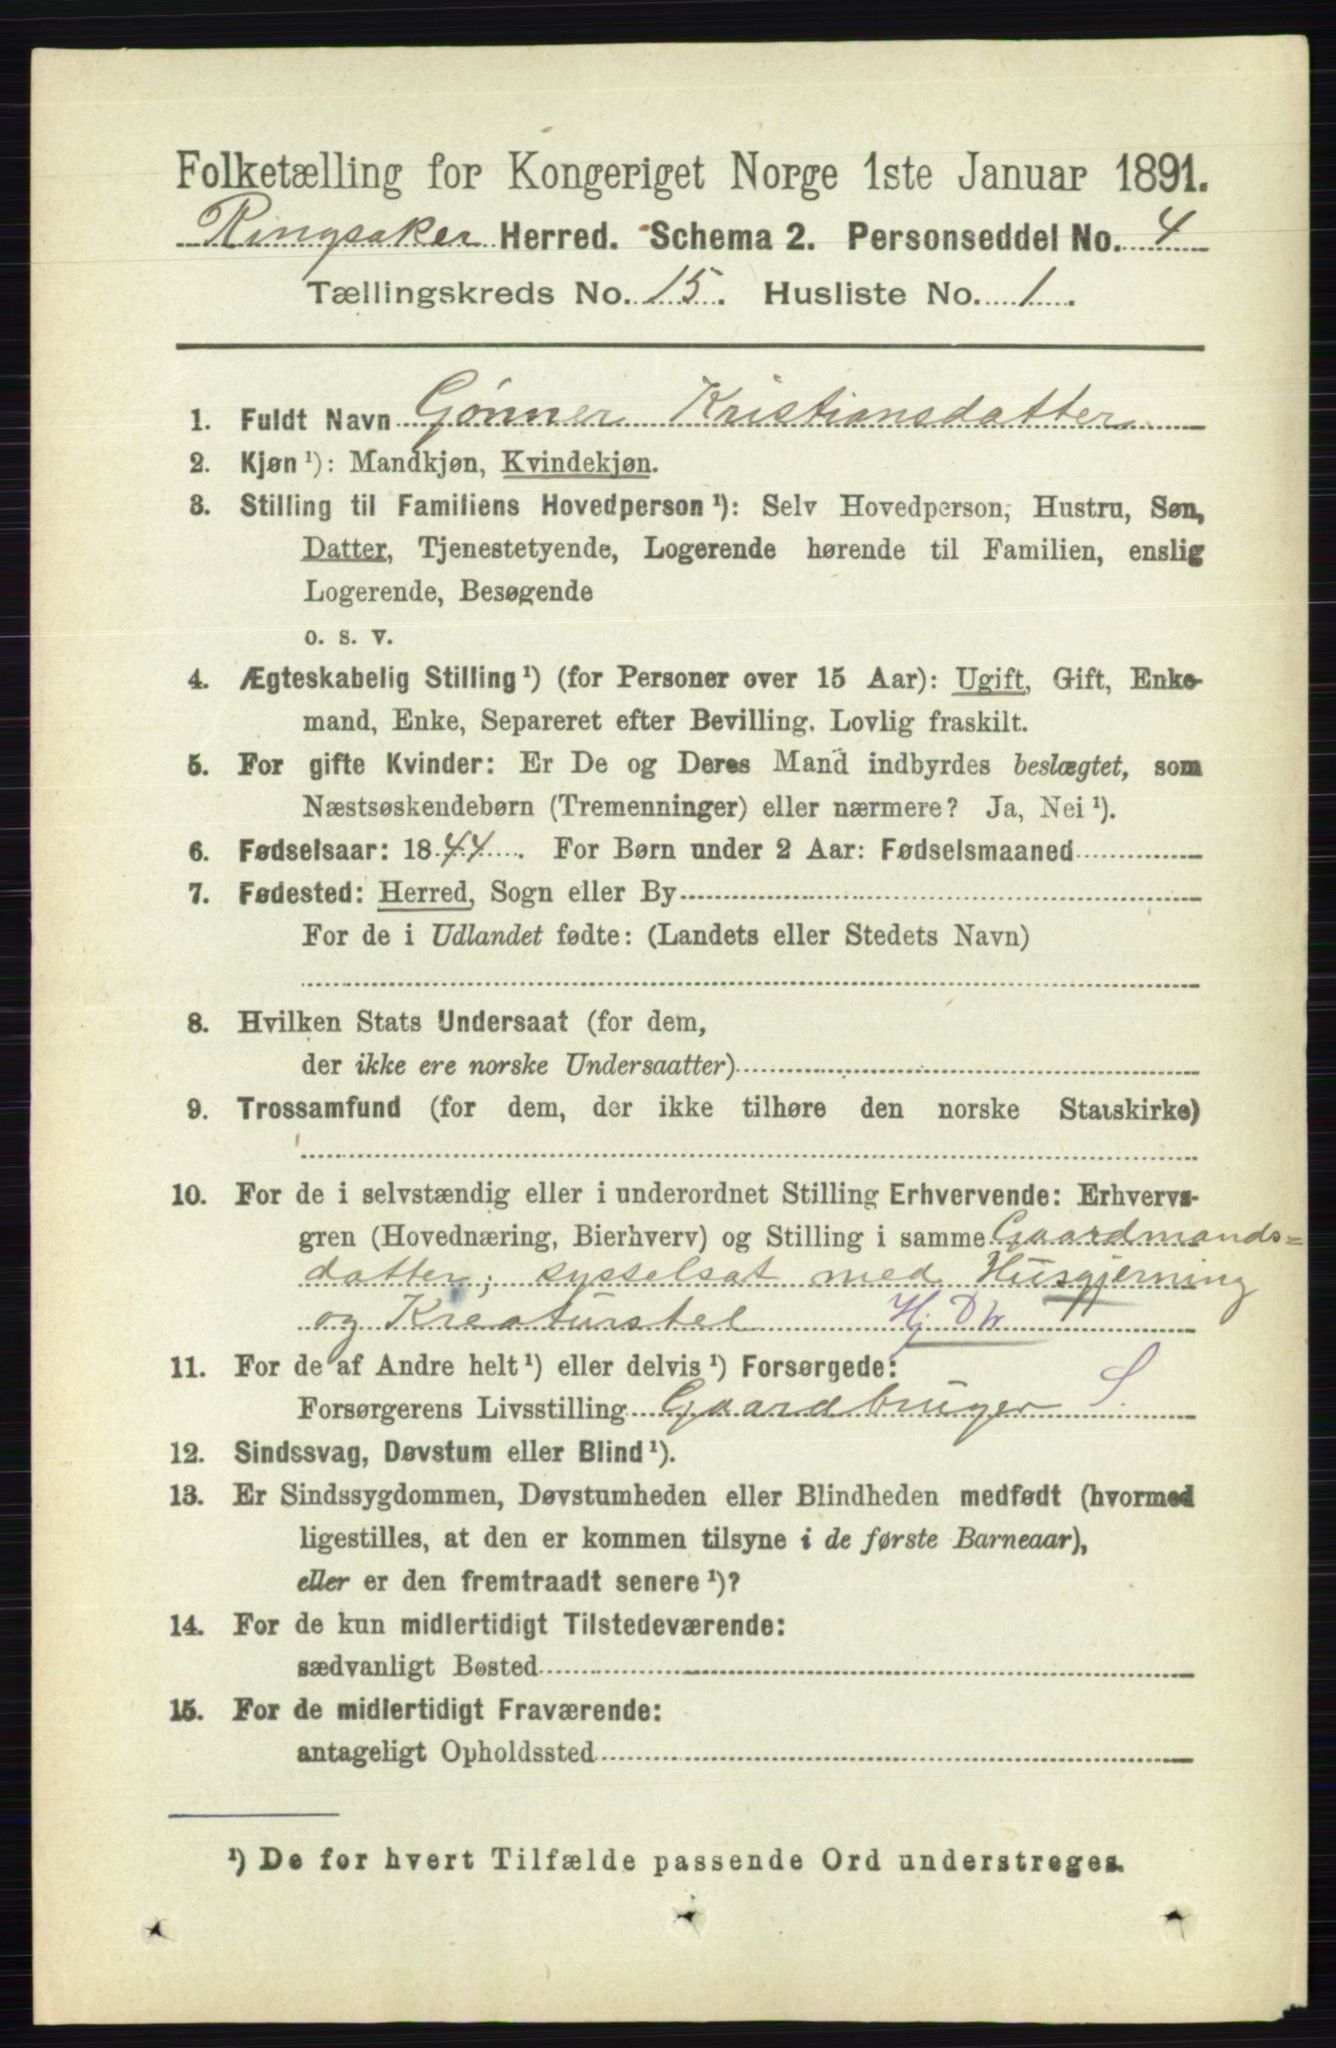 Folketælling for Kongeriget Norge 1ste Januar 1891.
Ringsaker Herred. Schema 2. Personseddel No. 4
Tællingskreds No. 15. Husliste No. 1.
1. Fuldt Navn Gønner Kristiansdatter
2. Kjøn ¹): Mandkjøn, Kvindekjøn.
3. Stilling til Familiens Hovedperson ¹): Selv Hovedperson, Hustru, Søn,
Datter, Tjenestetyende, Logerende hørende til Familien, enslig
Logerende, Besøgende
o. s. v.
4. Ægteskabelig Stilling ¹) (for Personer over 15 Aar): Ugift, Gift, Enke-
mand, Enke, Separeret efter Bevilling. Lovlig fraskilt.
5. For gifte Kvinder: Er De og Deres Mand indbyrdes beslægtet, som
Næstsøskendebørn (Tremenninger) eller nærmere? Ja, Nei ¹).
6. Fødselsaar: 1844. For Børn under 2 Aar: Fødselsmaaned
7. Fødested: Herred, Sogn eller By
For de i Udlandet fødte: (Landets eller Stedets Navn)
8. Hvilken Stats Undersaat (for dem,
der ikke ere norske Undersaatter)
9. Trossamfund (for dem, der ikke tilhøre den norske Statskirke)
10. For de i selvstændig eller i underordnet Stilling Erhvervende: Erhvervs-
gren (Hovednæring, Bierhverv) og Stilling i samme Gaardmands=
datter; sysselsat med Husgjerning
og Kreaturstel Hj. Dtr
11. For de af Andre helt ¹) eller delvis ¹) Forsørgede:
Forsørgerens Livsstilling Gaardbruger S.
12. Sindssvag, Døvstum eller Blind ¹).
13. Er Sindssygdommen, Døvstumheden eller Blindheden medfødt (hvormed
ligestilles, at den er kommen tilsyne i de første Barneaar),
eller er den fremtraadt senere ¹)?
14. For de kun midlertidigt Tilstedeværende:
sædvanligt Bosted
15. For de midlertidigt Fraværende:
antageligt Opholdssted
¹) De for hvert Tilfælde passende Ord understreges.